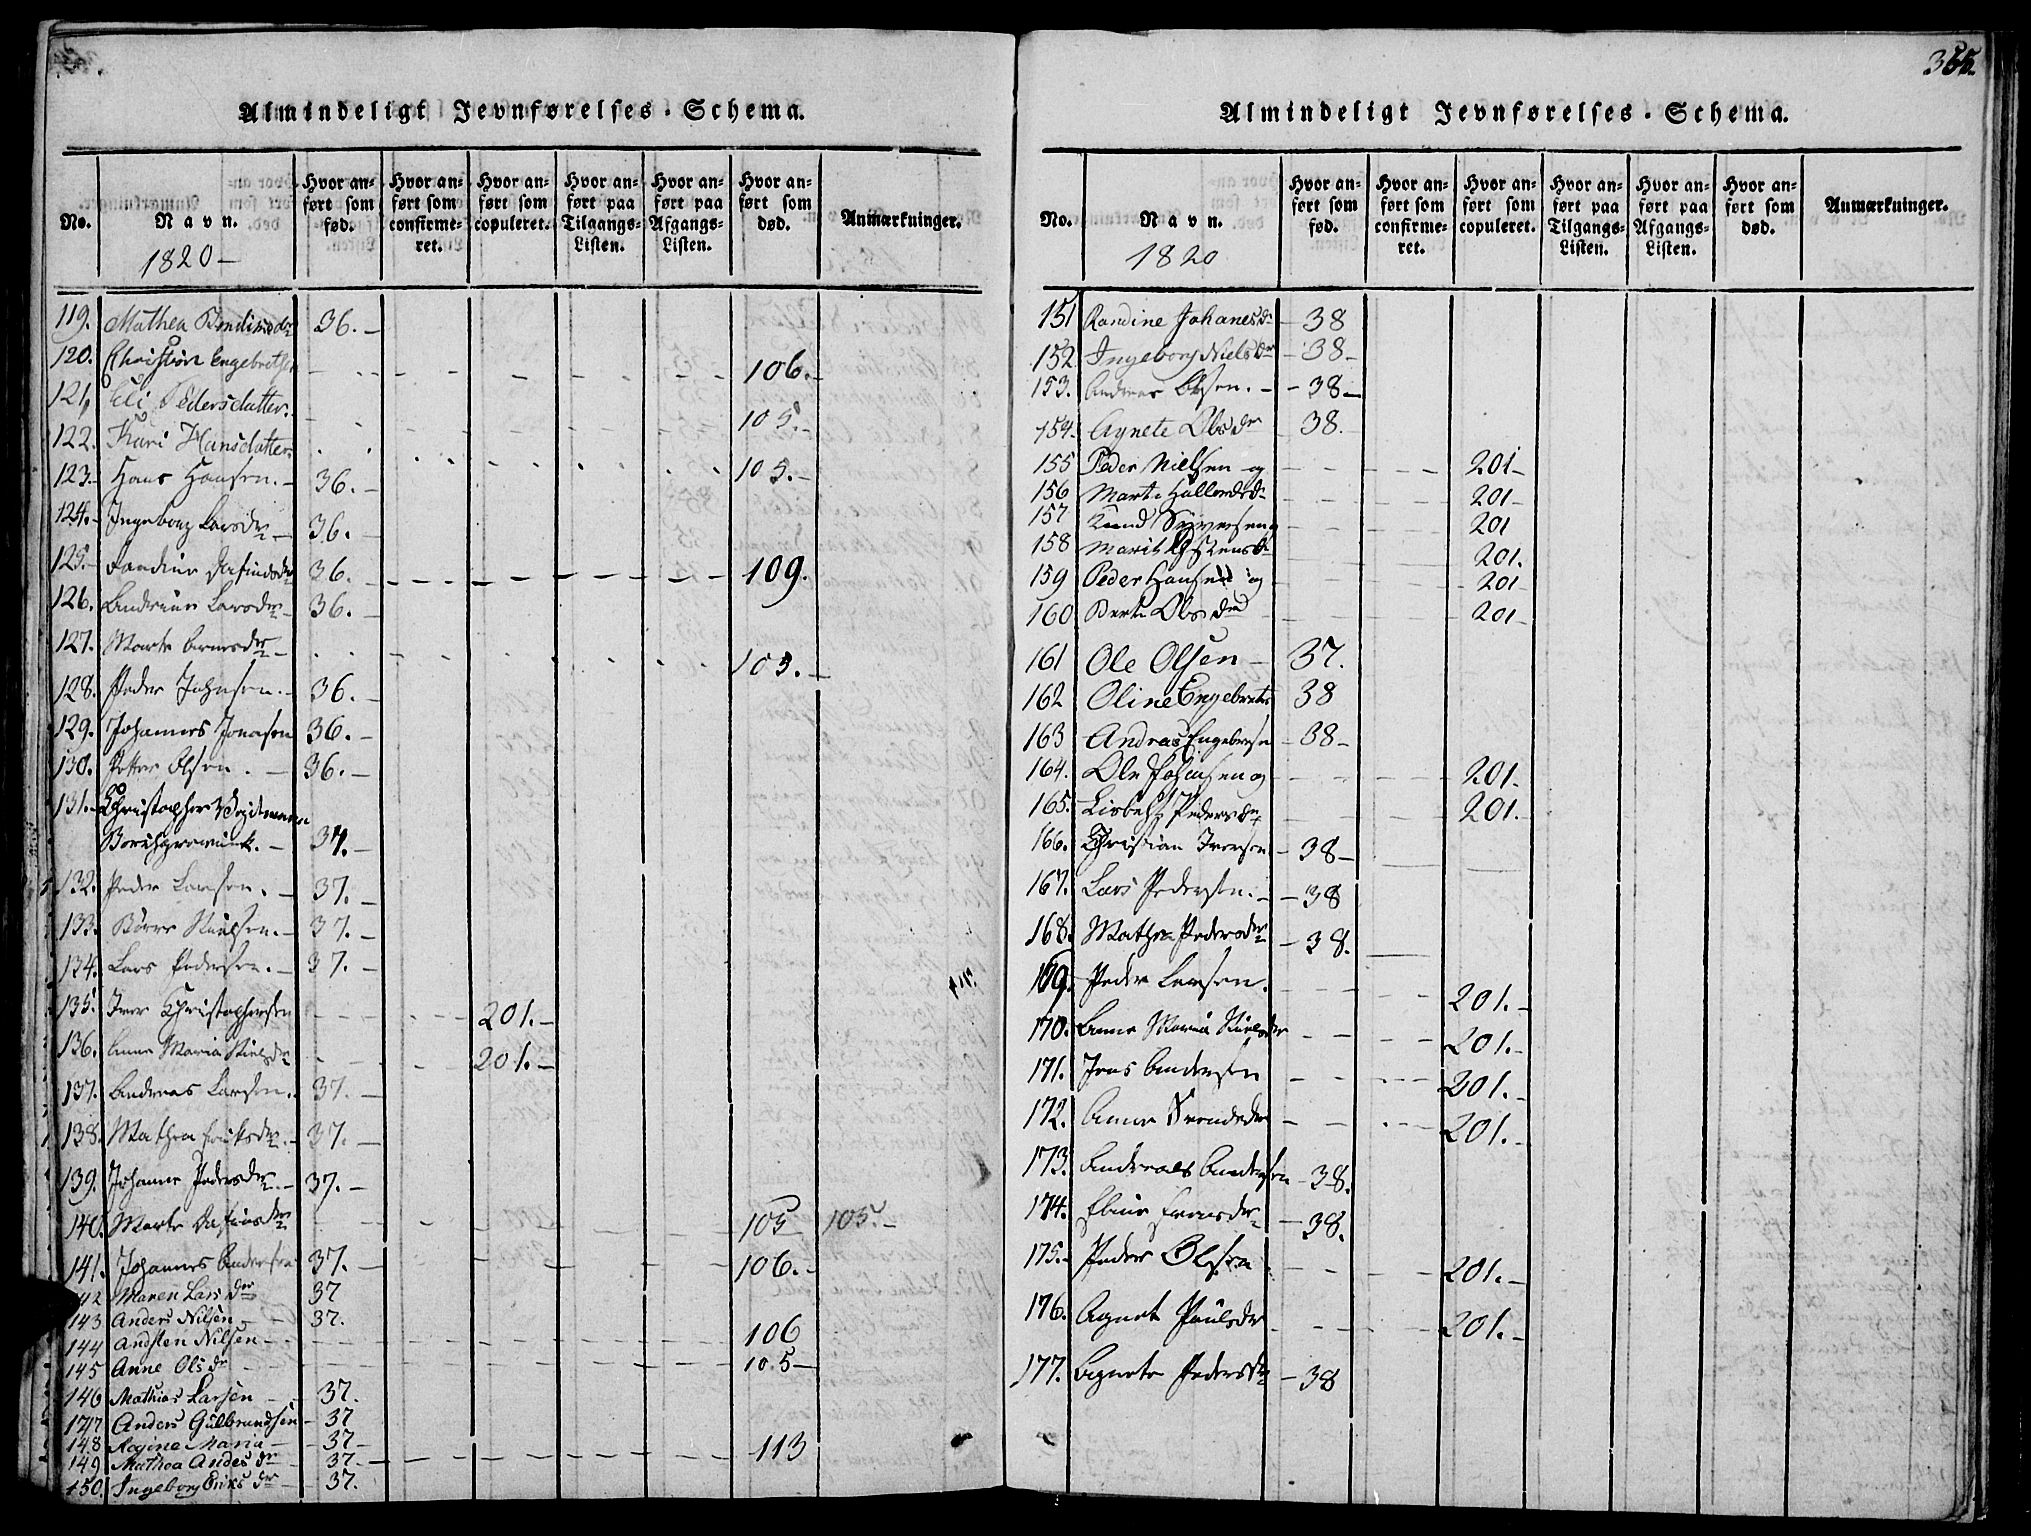 Almindeligt Jevnførelses-Schema.
No. Navn. Hvor anført som fød. Hvor anført som confirmeret. Hvor anført som copuleret. Hvor anført paa Tilgangs-Listen. Hvor anført paa Afgangs-Listen. Hvor anført som død. Anmærkninger.
1820 -
119. Mathea 36. -
120. Christian Engebretsen 106. -
121, Eli Pedersdatter. 105. -
122. Kari Hansdatter. 105. -
123. Hans Hansen. - 36. -
124. - Ingeborg Larsdr - 36. -
125. - 36. - 109.
126. Larsdr 36. -
127. Marte dr - 105. -
128. Peder Johnsen. - 36. -
129. Johannes Jonasen 36. -
130. Petter Olsen. - 36. -
131. - Christopher
37. -
132. Peder Larsen. - 37. -
133. Börre Nielsen. - 37. -
134. Lars Pedersen. - 37. -
135. Iver Christophersen 201. -
136. Anne Maria Nielsdr 201. -
137. Andreas Larsen. 37. -
138. Mathea Eriksdr. - 37. -
139. Johanne Pedersdr. - 37. -
140. Marte 105 105. -
141. Johannes Andersen 37. - 106. -
142 Maren Lars dr 37
143 Anders Nilsen - 37.
144 Andsten Nilsen - 106
145 Anne Ols dr 105 -
146 Mathias Larsen - 37.
147 Anders Gulbrandsen - 37
148 Regine Maria - - 37 -
149 Mathea Andes dr - 37. - 113
150. Ingeborg Eriks dr - 37.
365.
Almindeligt Jevnførelses-Schema.
No. Navn. Hvor anført som fød. Hvor anført som confirmeret. Hvor anført som copuleret. Hvor anført paa Tilgangs-Listen. Hvor anført paa Afgangs-Listen. Hvor anført som død. Anmærkninger.
1820
151 Randine Johanesdr - 38
152 Ingeborg Niels dr - 38 -
153. Andreas Olsen. - - 38 -
154. Agnete Ols dr 38.
155 Peder Nielsen og 201 -
156 Marte 201 -
157 Knud Syversen og 201
158 Marit 201.
159 Peder Hansen og 201
160 Berte Ols dr 201 -
161 Ole Olsen - 37.
162 Oline Engebrets 38
163 Andreas Engebrsen - 38 -
164. Ole Johansen og 201.
165. Lisbeth Pedersdr 201. -
166. Christian Iversen - 38 -
167. Lars Pedersen. - - 38
168. Mathea Pedersdr - 38.
169. Peder Larsen. 201. -
170. Anne Maria Nielsdr 201. -
171. Jens Andersen 201. -
172. Anne 201. -
173. Andreas Andersen - 38.
174. - 38.
175. - Peder Olsen 201. -
176. Agnete Paulsdr 201. -
177. Agnete Pedersdr - 38